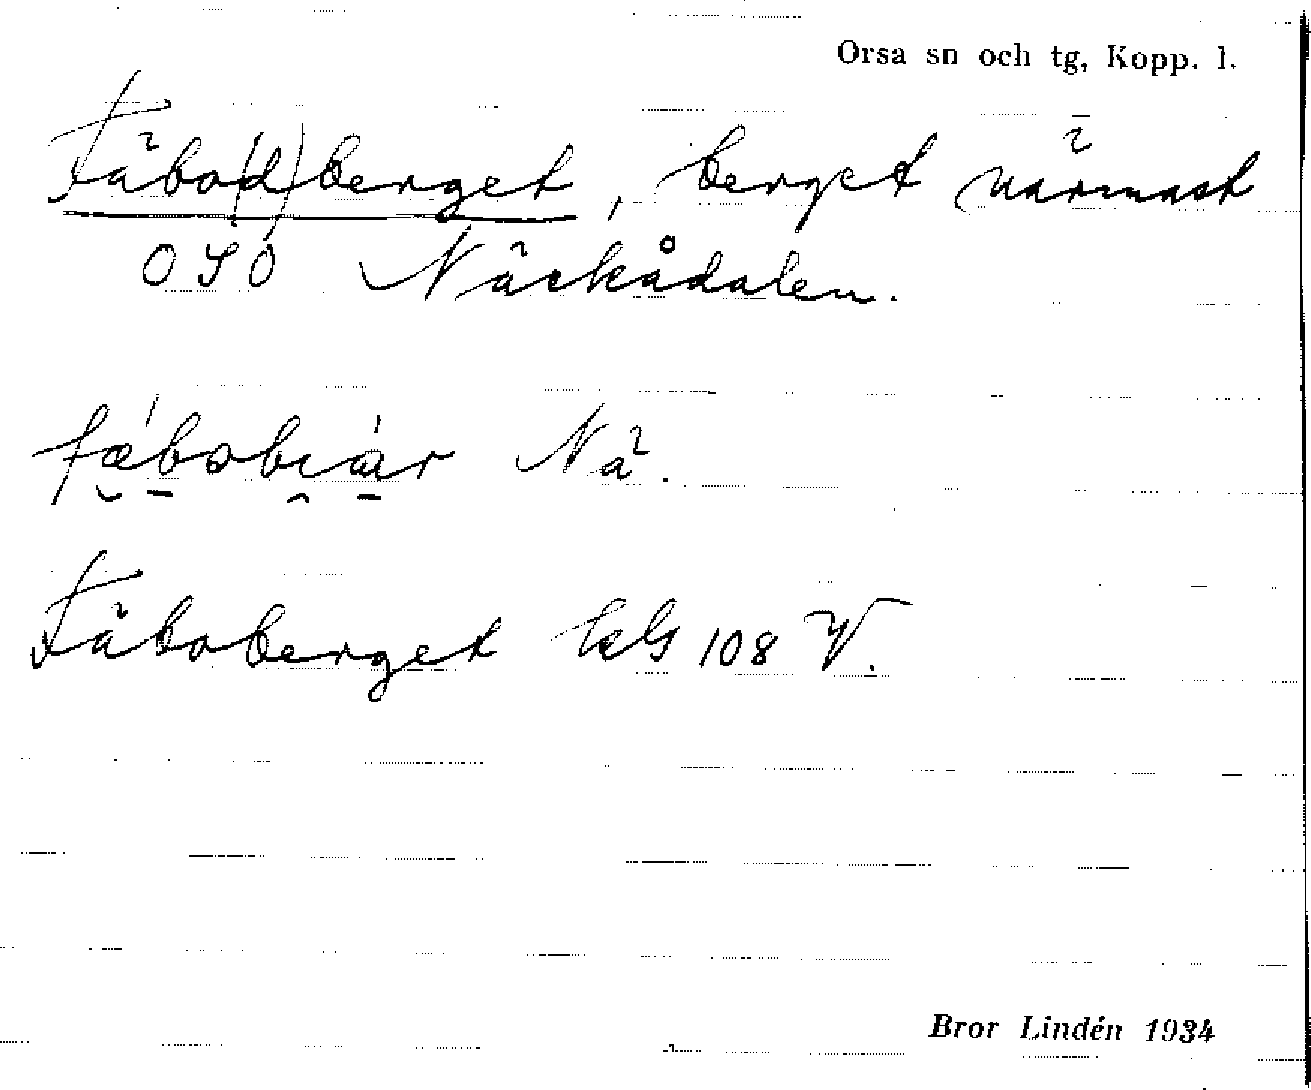 Orsa sn och tg, Kopp. l.
Fäbo(d)berget, berget närmast
OSO Näckådalen.
fæbobiàr Nä.
Fäboberget
108 V.
Bror Lindén 1934